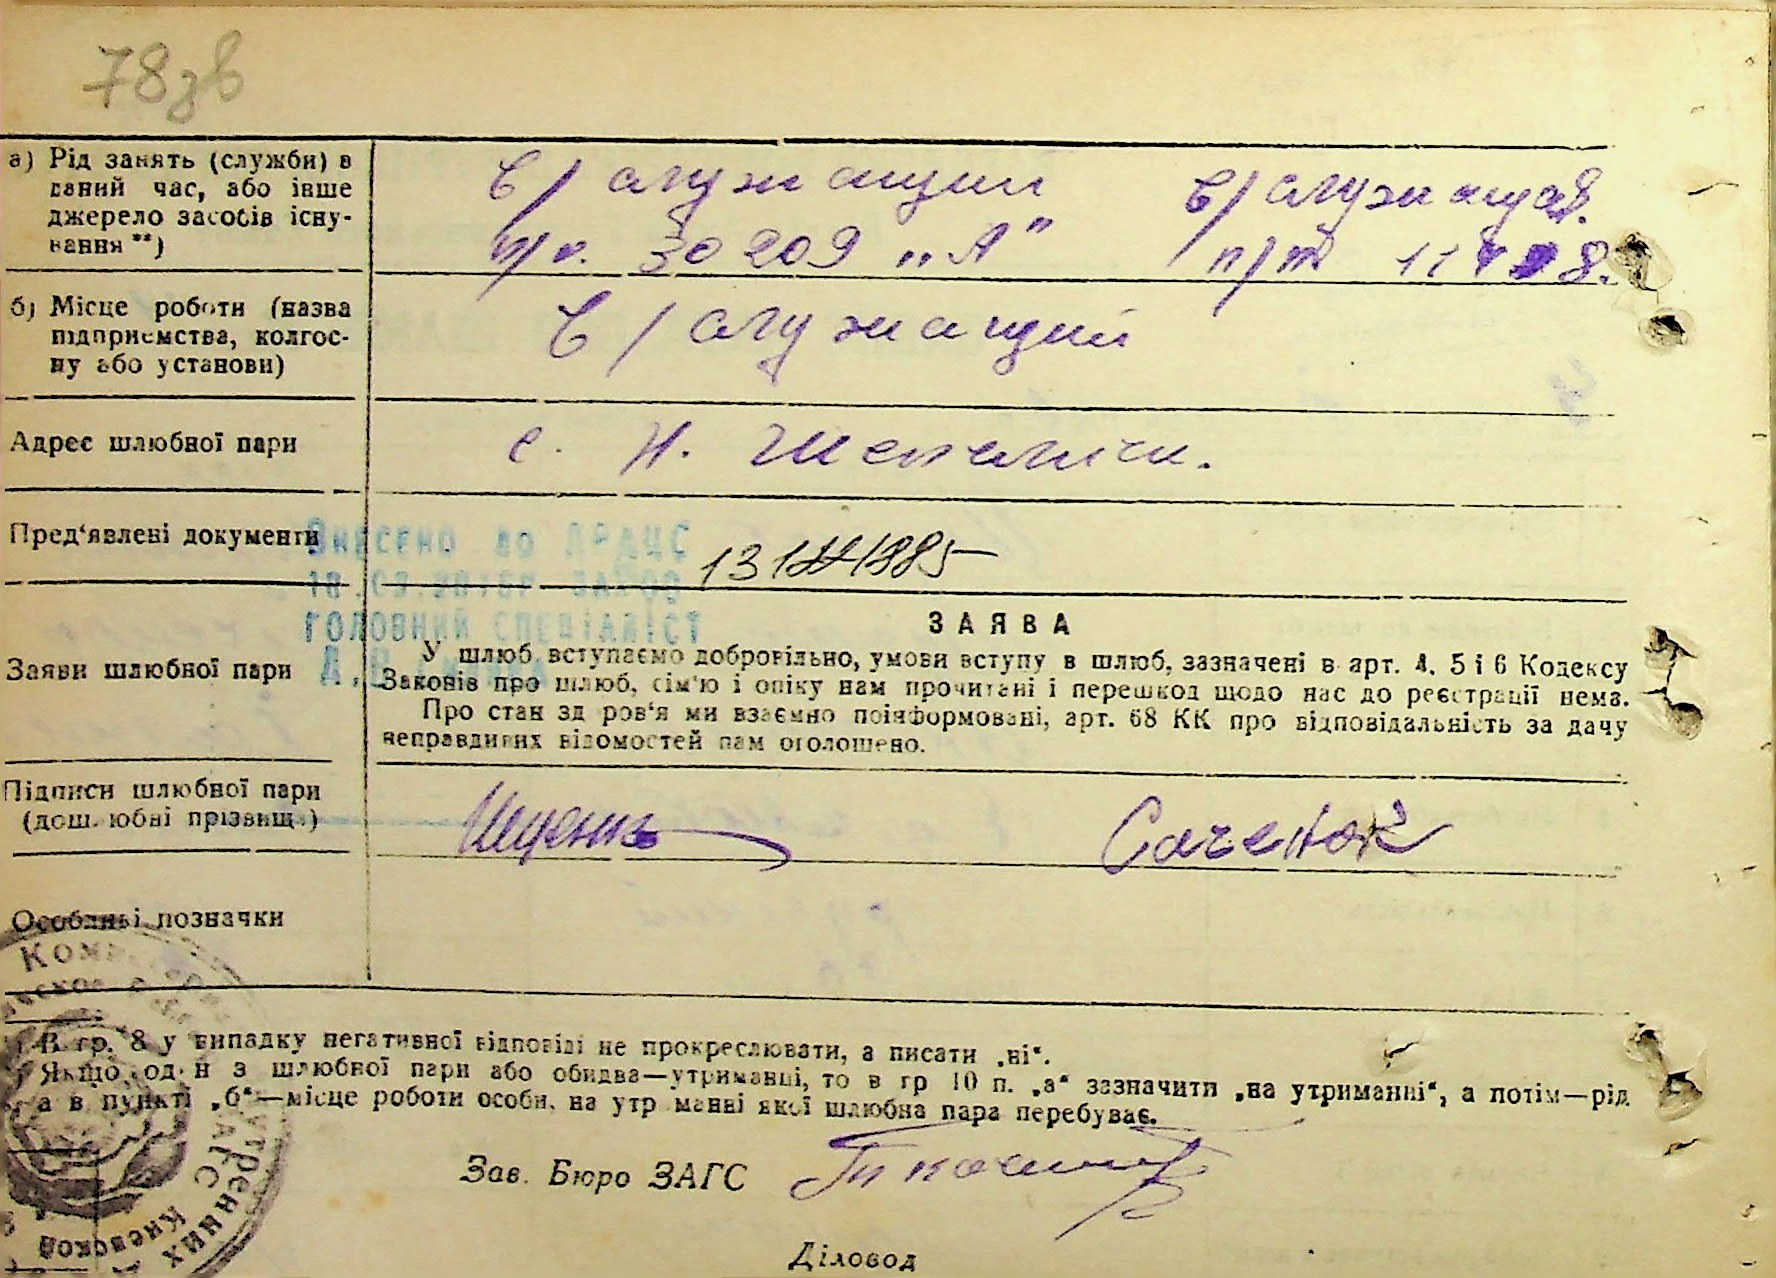 78зв
а) Рід занять (служби) в
даний час, або інше
джерело засобів існу-
вання **)
в/служащий в/служащая.
п/п. 30209 „А" п/п 11
б) Місце роботи (назва
підприємства, колгос-
пу або установи)
в/служащий
Адрес шлюбної пари
с. Н. Шепеличи.
Пред'явлені документи
Внесено до ДРАЦС
ГОЛОВНИЙ СПЕЦІАЛІСТ
ЗАЯВА
Заяви шлюбної пари
У шлюб вступаємо добровільно, умови вступу в шлюб, зазначені в арт. 4, 5 і 6 Кодексу
Законів про шлюб, сім'ю і опіку нам прочитані і перешкод щодо нас до реєстрації нема.
Про стан здоров'я ми взаємно поінформовані, арт. 68 КК про відповідальність за дачу
неправдивих відомостей нам оголошено.
Підписи шлюбної пари
(дошлюбні прізвища)
Ищенко Саченок
Особливі позначки
В гр. 8 у випадку негативної відповіді не прокреслювати, а писати „ні".
Якщо один з шлюбної пари або обидва—утриманці, то в гр 10 п. „а" зазначити „на утриманні", а потім—рід
а в пункті „б"—місце роботи особи, на утриманні якої шлюбна пара перебуває.
Зав. Бюро ЗАГС
Діловод